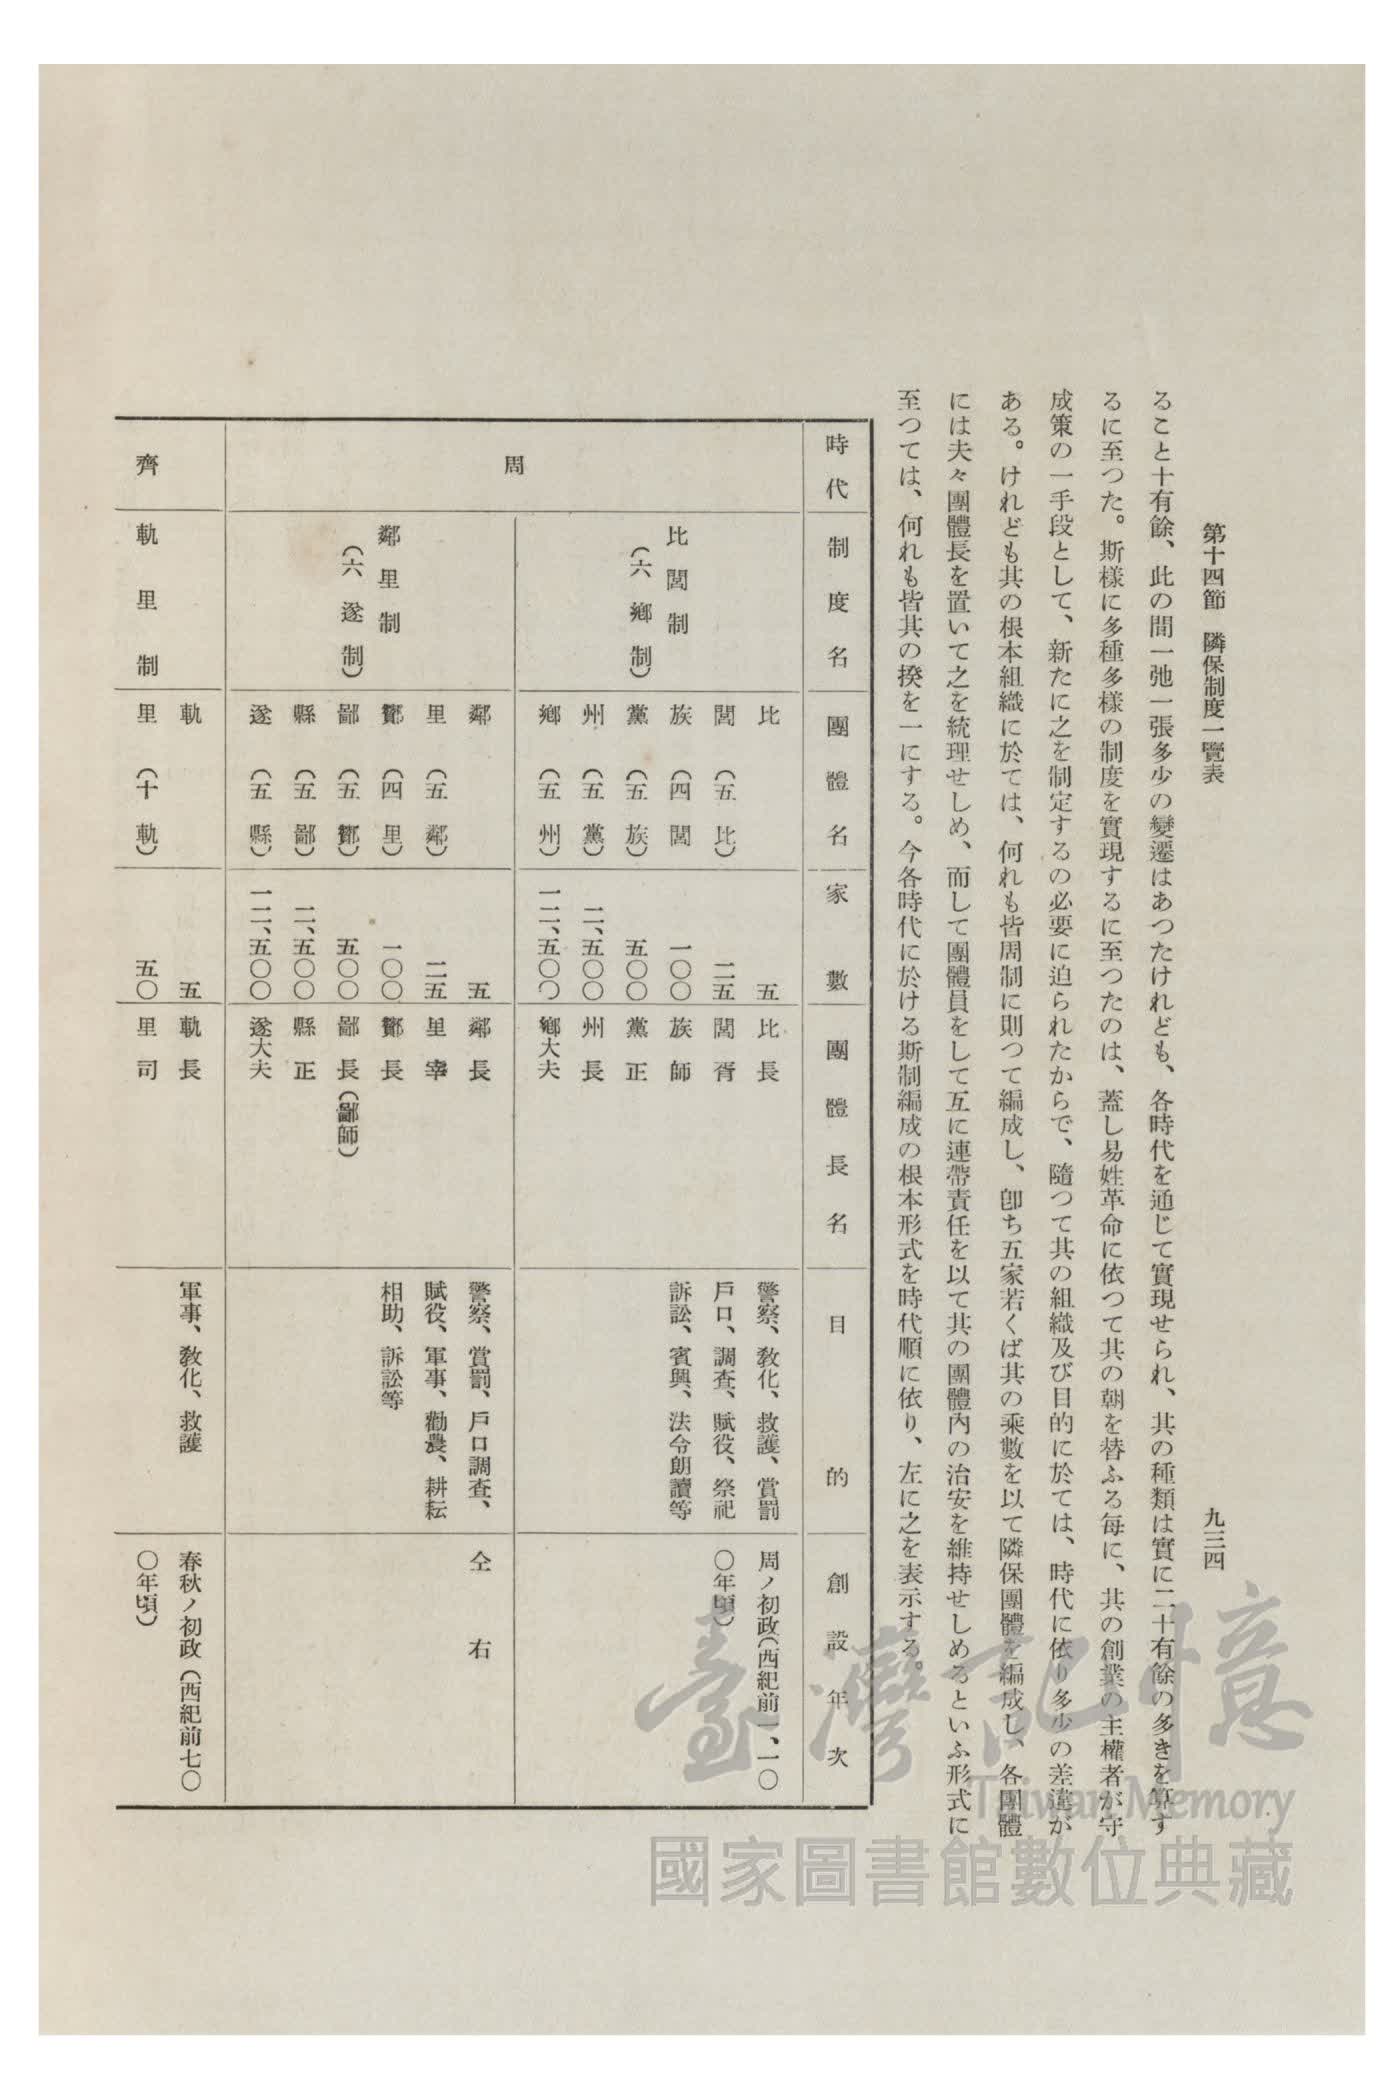 第十四節　隣保制度一覽表
九三四
ること十有餘、此の間一弛一張多少の變遷はあつたけれども、各時代を通じて實現せられ、其の種類は實に二十有餘の多きを算す
るに至つた。斯樣に多種多樣の制度を實現するに至つたのは、蓋し易姓革命に依つて其の朝を替ふる每に、其の創業の主權者が守
成策の一手段として、新たに之を制定するの必要に迫られたからで、隨つて其の組織及び目的に於ては、時代に依り多少の差違が
ある。けれども其の根本組織に於ては、何れも皆周制に則つて編成し、卽ち五家若くば其の乘數を以て隣保團體を編成し、各團體
には夫々團體長を置いて之を統理せしめ、而して團體員をして互に連帶責任を以て其の團體內の治安を維持せしめるといふ形式に
至つては、何れも皆其の揆を一にする。今各時代に於ける斯制編成の根本形式を時代順に依り、左に之を表示する。
時代　制度名　團體名　家數　團體長名　目的　創設年次
周
比閭制
（六鄕制）
比　五　比長
閭（五比）　二五　閭胥
族（四閭　一〇〇　族師
黨（五族）　五〇〇　黨正
州（五黨）　二、五〇〇　州長
鄕（五州）　一二、五〇〇　鄕大夫
警察、敎化、救護、賞罰
戶口、調査、賦役、祭祀
訴訟、賓興、法令朗讀等
周ノ初政（西紀前一、一〇
〇年頃）
鄰里制
（六遂制）
鄰　五　鄰長
里（五鄰）　二五　里宰
酇（四里）　一〇〇　酇長
鄙（五酇）　五〇〇　鄙長（鄙師）
縣（五鄙）　二、五〇〇　縣正
遂（五縣）　一二、五〇〇　遂大夫
警察、賞罰、戶口調査、
賦役、軍事、勸農、耕耘
相助、訴訟等
仝右
齊
軌里制
軌　五　軌長
里（十軌）　五〇　里司
軍事、敎化、救護
春秋ノ初政（西紀前七〇
〇年頃）
臺灣記憶
Taiwan Memory
國家圖書館數位典藏